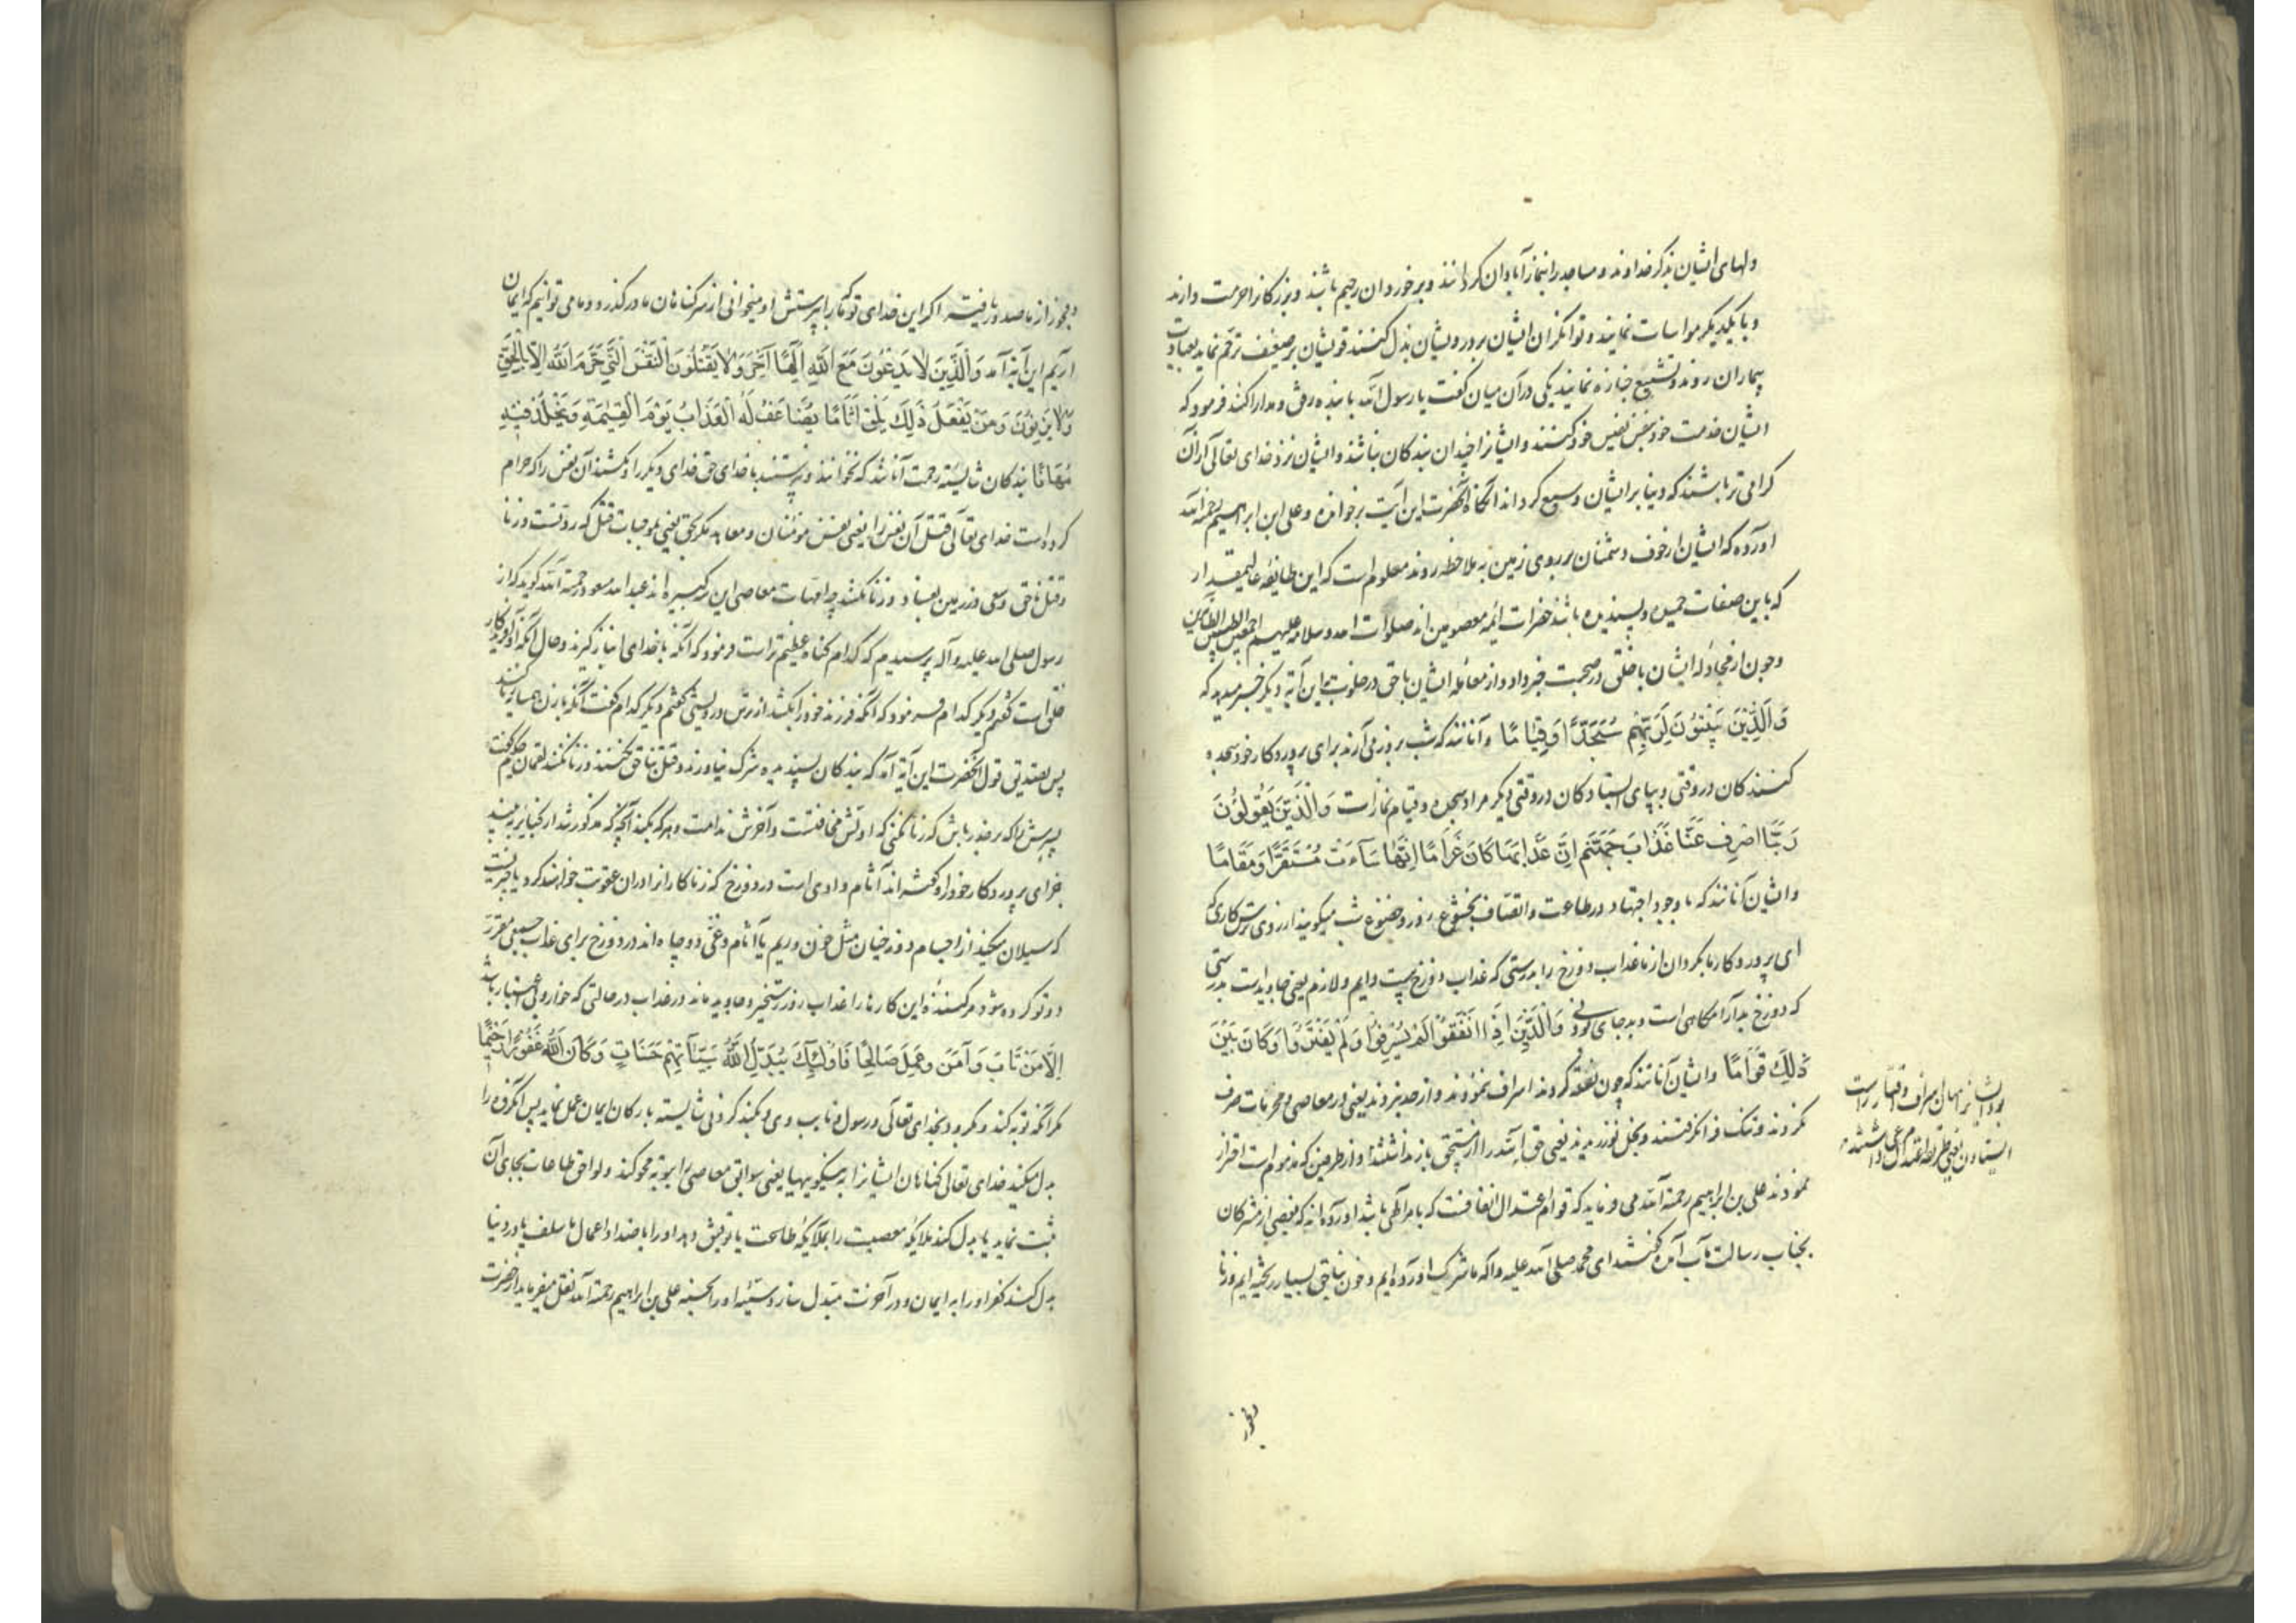 دلهای ایشان بذکر خدا وند و مساجد را بنماز آبادان کردانند و بر خوردان رحیم باشند و بزرکانرا حرمت دارند
و با یکدیکر مواسات نمایند و توانکران ایشان بر درویشان بذل کنند قویشان بر ضعیف ترحم نماید بعیادت
بیماران روند و تشییع جنازه نمایند یکی در آن میان کفت یا رسول الله با بنده رفق و مدارا کنند فرمود که
ایشان خدمت خود بنفس نفیس خود کنند و ایشانرا چندان بندکان نباشد و ایشان نزد خدای تعالی از آن
کرامی تر باشند که دنیا بر ایشان وسیع کرداند آنکاه آنحضرت این آیت برخوانده و علی ابن ابراهیم رحمه الله
آورده که ایشان از خوف دشمنان بر روی زمین به ملاحظه روند معلوم است که این طایفهٔ عالیمقدار
که باین صفات حمیده و پسندیده باشند حضرات ائمه معصومین اند صلوات الله و سلامه علیهم اجمعین الطیبین الطاهرین
و چون از مجادلهٔ ایشان با خلق در صحبت خبر داد و از معاملهٔ ایشان با حق در خلوت باین آیه دیکر خبر میدهد که
وَالَّذِينَ يَبِيتُونَ لِرَبِّهِمْ سُجَّدًا وَقِيَامًا و آنانند که شب بروز می آرند برای پروردکار خود سجده
کنندکان در وقتی و بپای ایستادکان در وقتی دیکر مراد سجده و قیام نماز است وَالَّذِينَ يَقُولُونَ
رَبَّنَا اصْرِفْ عَنَّا عَذَابَ جَهَنَّمَ إِنَّ عَذَابَهَا كَانَ غَرَامًا إِنَّهَا سَاءَتْ مُسْتَقَرًّا وَمُقَامًا
و ایشان آنانند که با وجود اجتهاد در طاعت و اتصاف بخشوع روز و خضوع شب میکویند از روی ترس کاری که
ای پروردکار ما بکردان از ما عذاب دوزخ را بدرستی که عذاب دوزخ هست دایم و لازم یعنی جاوید است بدرستی
که دوزخ بد آرامکاهی است و بد جای بودنی وَالَّذِينَ إِذَا أَنْفَقُوا لَمْ يُسْرِفُوا وَلَمْ يَقْتُرُوا وَكَانَ بَيْنَ
ذَلِكَ قَوَامًا و ایشان آنانند که چون نفقه کردند اسراف ننمودند و از حد نبردند یعنی در معاصی و محرمات صرف
نکردند و تنک فرانکرفتند و بخل نورزیدند یعنی حق الله را از مستحق باز نداشتند و از طرفین که مذموم است احتراز
نمودند علی بن ابراهیم رحمة الله می فرماید که قوام اعتدال انفاقست که بامر الهی باشد آورده اند که بعضی از مشرکان
بجناب رسالت مآب آمده کفتند ای محمد صلی الله علیه و آله ما شرک آورده ایم و خون بناحق بسیار ریخته ایم و زنا
و بود انفاق ایشان میان اسراف و اقتار راست
ایستاده یعنی طریقهٔ اعتدال مرعی داشتند
و فجور
و فجور از ما صدور یافته اکر این خدای تو که ما را بپرستش او میخوانی از سر کناهان ما در کذرد ما می توانیم که ایمان
آریم این آیه آمد وَالَّذِينَ لَا يَدْعُونَ مَعَ اللَّهِ إِلَهًا آخَرَ وَلَا يَقْتُلُونَ النَّفْسَ الَّتِي حَرَّمَ اللَّهُ إِلَّا بِالْحَقِّ
وَلَا يَزْنُونَ وَمَنْ يَفْعَلْ ذَلِكَ يَلْقَ أَثَامًا يُضَاعَفْ لَهُ الْعَذَابُ يَوْمَ الْقِيَمَةِ وَيَخْلُدْ فِيهِ
مُهَانًا بندکان شایسته رحمت آنانند که نخوانند و نپرستند با خدای حق خدای دیکر را و نکشند آن نفس را که حرام
کرده است خدای تعالی قتل آن نفس را یعنی نفس مؤمنان و معاهد مکر بحق یعنی بموجبات قتل که ردتست و زنا
و قتل ناحق و سعی در زمین بفساد و زنا نکنند چه امهات معاصی این سه کبیره اند عبد الله مسعود رحمة الله کوید که از
رسول صلی الله علیه و آله پرسیدم که کدام کناه عظیم تر است فرمود که آنکه با خدای انباز کیرند و حال آنکه آفریدکار
خلق است کفتم دیکر کدام فرمود که آنکه فرزند خود را بکشد از ترس درویشی کفتم دیکر کدام کفت آنکه با زن همسایه زنا کنند
پس بتصدیق قول آنحضرت این آیه آمد که بندکان پسندیده شرک نیاورند و قتل بناحق نکنند و زنا نکنند لقمان حکیم کفت
پسرش را که بر حذر باش که زنا نکنی که اولش مخافتست و آخرش ندامت و هر که بکند آنچه که مذکور شد از کبایر به بیند
جزای پروردکار خود را و کفته اند آثام وادی است در دوزخ که زناکارانرا در آن عقوبت خواهند کرد یا چیزیست
که سیلان میکند از اجسام دوزخیان مثل خون و ریم یا آثام و غی دو چاه اند در دوزخ برای عذاب جمعی مقرر
دو تو کرده شود مر کنندهٔ این کارها را عذاب روز رستخیز و جاوید ماند در عذاب در حالتی که خوار و بی اعتبار باشد
إِلَّا مَنْ تَابَ وَآمَنَ وَعَمِلَ صَالِحًا فَأُولَئِكَ يُبَدِّلُ اللَّهُ سَيِّئَاتِهِمْ حَسَنَاتٍ وَكَانَ اللَّهُ غَفُورًا رَحِيمًا
مکر آنکه توبه کند و بکرود بخدای تعالی و رسول و نایب وی و بکند کردنی شایسته بارکان ایمان عمل نماید پس آنکروه را
بدل میکند خدای تعالی کناهان ایشانرا به نیکوییها یعنی سوابق معاصی را بتوبه محو کند و لواحق طاعات بجای آن
ثبت نماید یا بدل کند ملایکهٔ معصیت را بملایکهٔ طاعت یا توفیق دهد او را باضداد اعمال ما سلف یا در دنیا
بدل کند کفر او را به ایمان و در آخرت مبدل سازد سیئهٔ او را بحسنه علی بن ابراهیم رحمة الله نقل میفرماید از حضرت